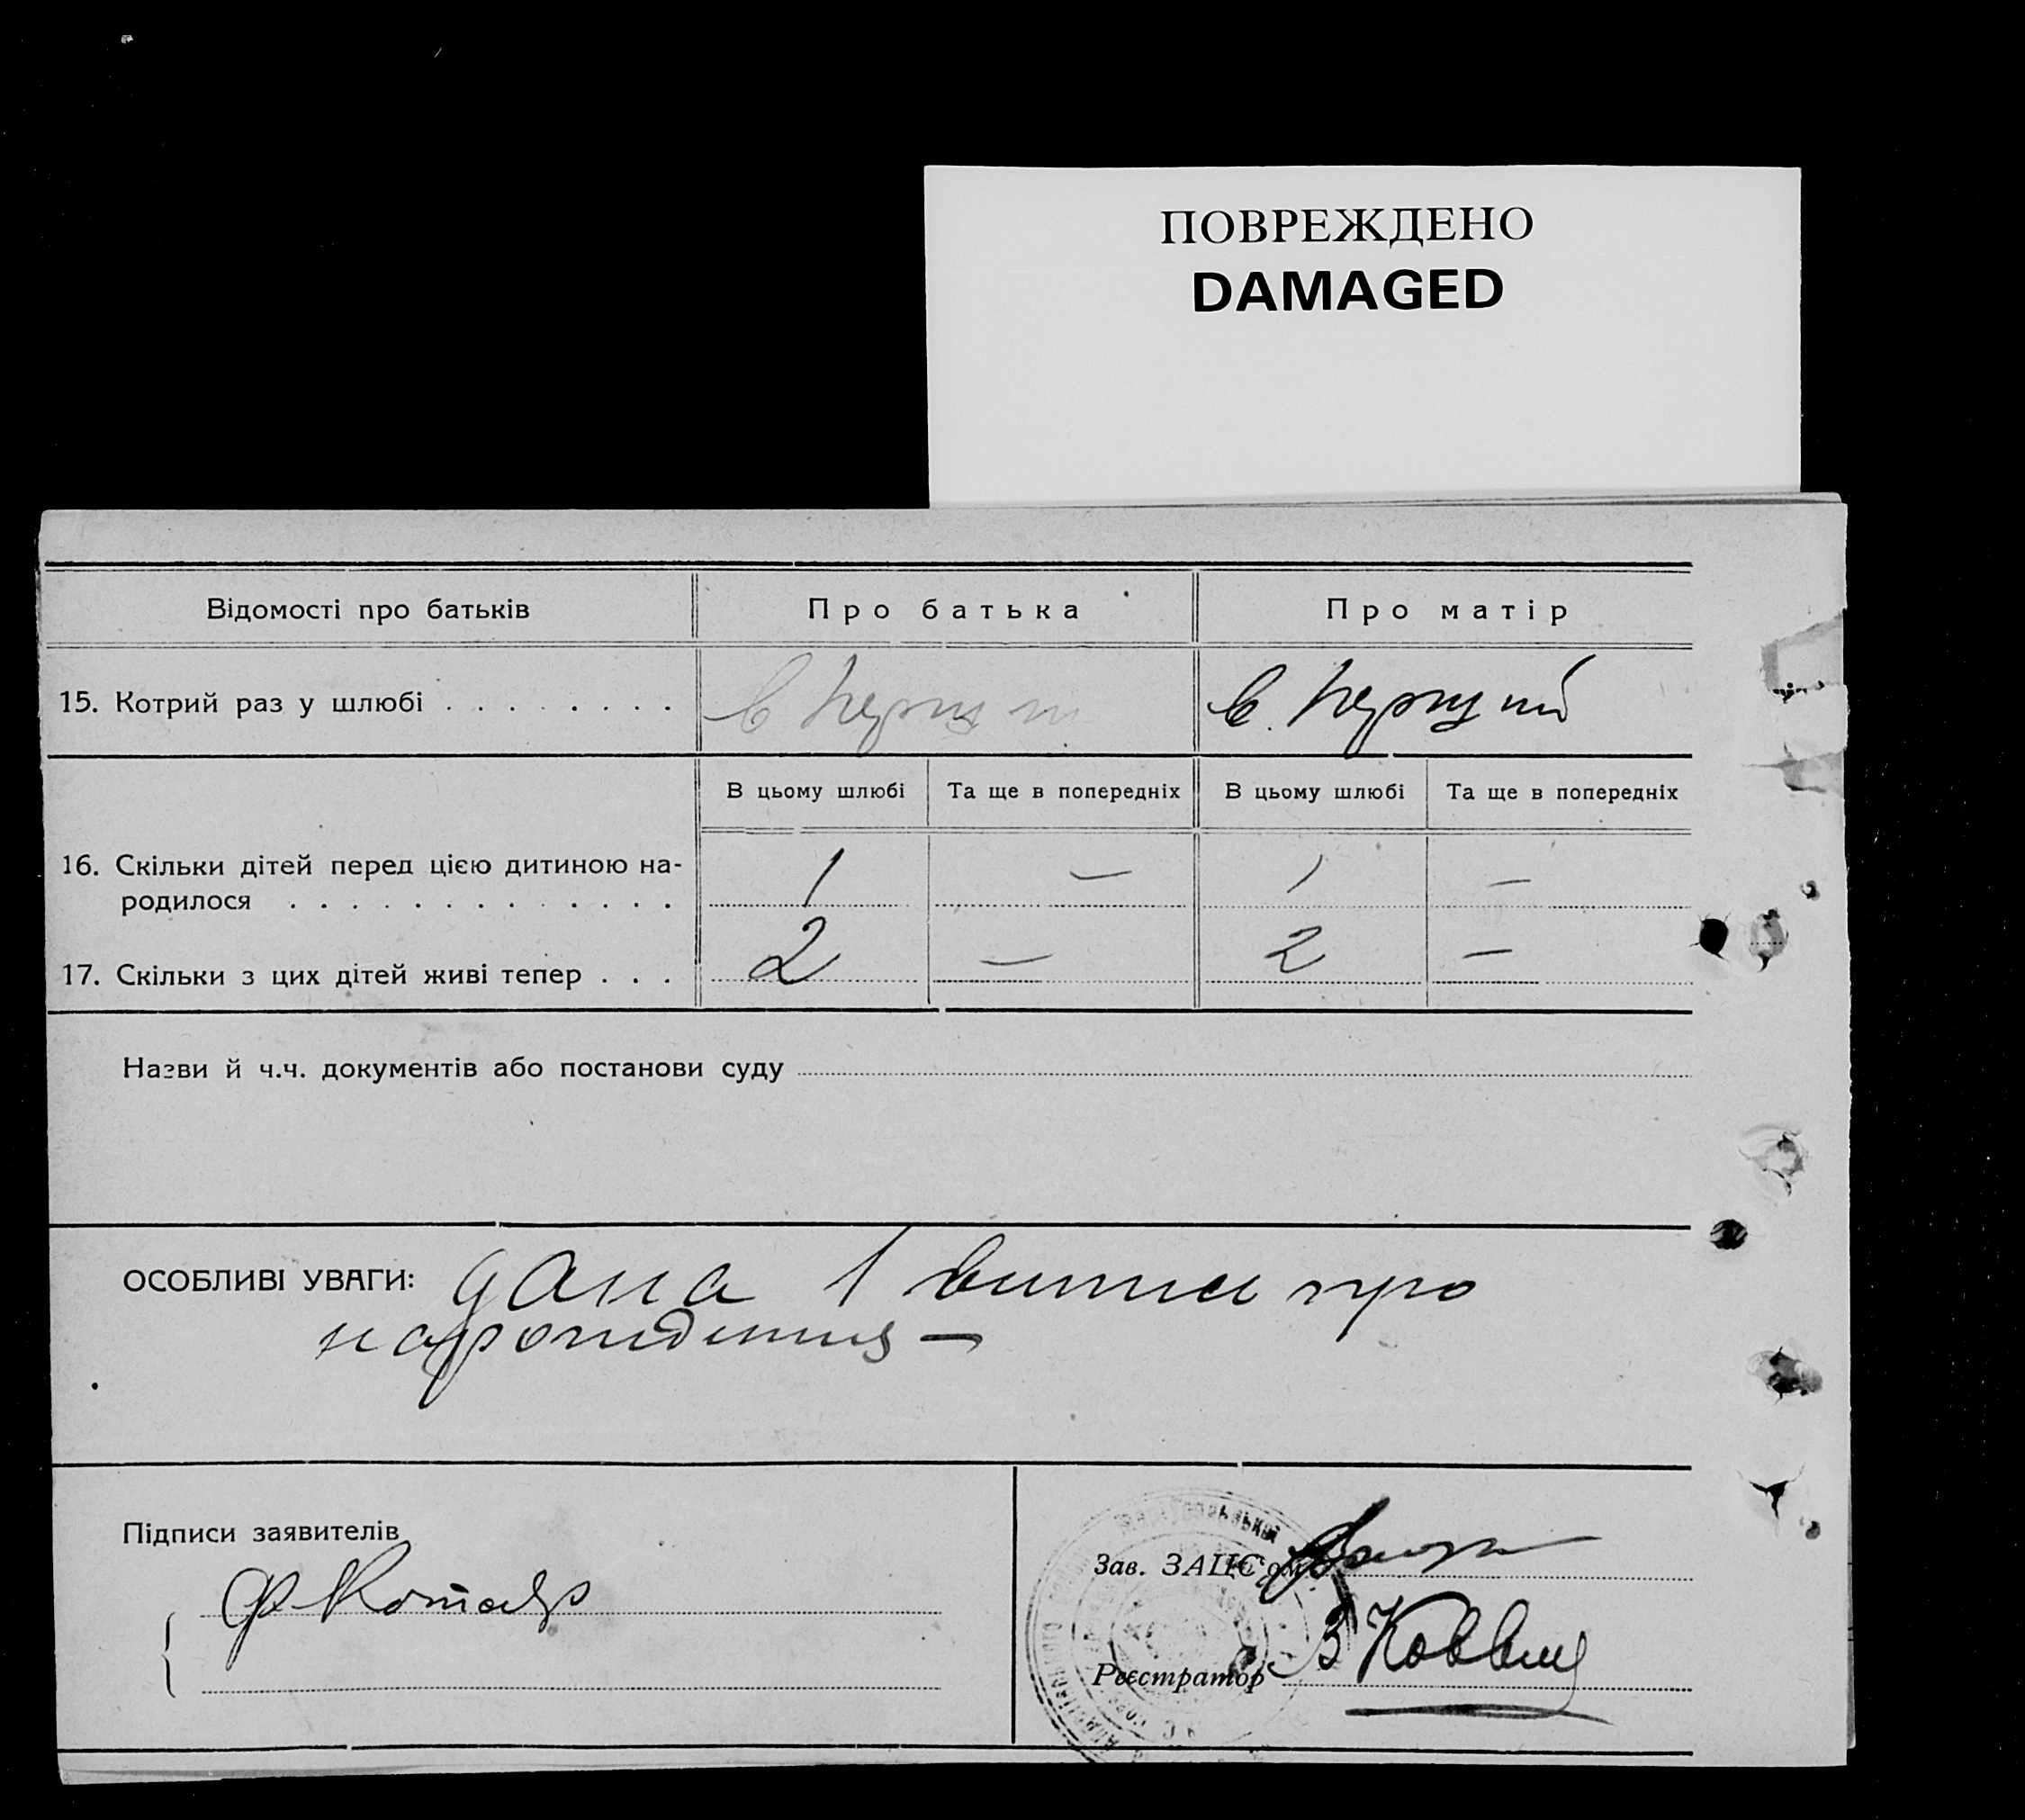 ПОВРЕЖДЕНО
DAMAGED
Відомості про батьків Про батька Про матір
15. Котрий раз у шлюбі в перши в. перший
В цьому шлюбі Та ще в попередніх В цьому шлюбі Та ще в попередніх
16. Скільки дітей перед цією дитиною на-
родилося 1 — 1 —
17. Скільки з цих дітей живі тепер 2 — 2 —
Назви й ч.ч. документів або постанови суду
ОСОБЛИВІ УВАГИ: дана 1 випис про
нарождения —
Підписи заявителів
Зав. ЗАЦС'ом
Реєстратор